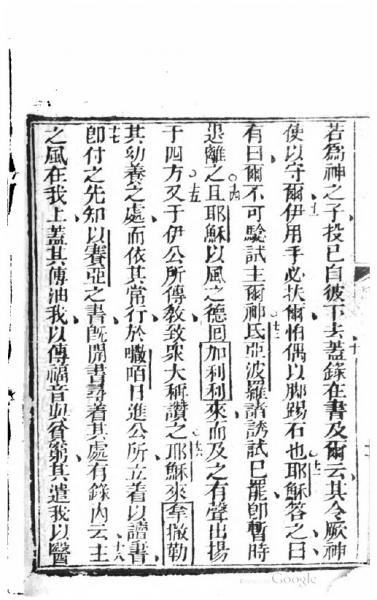 若為神之子投己自彼下去蓋錄在書及爾云其令厥神
使以守爾伊用手必扶爾怕偶以脚踢石也耶穌答之曰
有曰爾不可驗試主爾神氐亞波羅諸誘試已罷卽暫時
退離之且耶穌以風之德回加利利來而及之有聲出揚
于四方又于伊公所傳教致眾大稱讚之耶穌來拏撒勒
其幼養之處而依其常行於嚈咟日進公所立着以讀書
卽付之先知以賽亞之書旣開書尋着其處有錄內云主
之風在我上蓋其傅油我以傳福音與貧窮其遣我以醫
十
十一
十二
十三
十四
十五
十六
十七
十八
Google